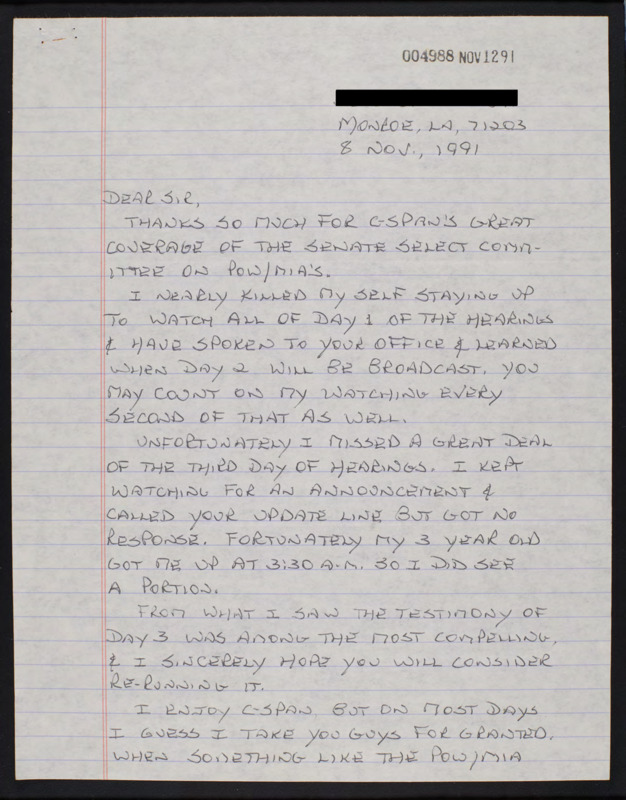 004988 NOV1291
MONROE, LA, 71203
8 NOV., 1991
DEAR SIR,
THANKS SO MUCH FOR C-SPAN'S GREAT
COVERAGE OF THE SENATE SELECT COMM-
ITTEE ON POW/MIA'S.
I NEARLY KILLED MY SELF STAYING UP
TO WATCH ALL OF DAY 1 OF THE HEARINGS
& HAVE SPOKEN TO YOUR OFFICE & LEARNED
WHEN DAY 2 WILL BE BROADCAST. YOU
MAY COUNT ON MY WATCHING EVERY
SECOND OF THAT AS WELL.
UNFORTUNATELY I MISSED A GREAT DEAL
OF THE THIRD DAY OF HEARINGS. I KEPT
WATCHING FOR AN ANNOUNCEMENT &
CALLED YOUR UPDATE LINE BUT GOT NO
RESPONSE. FORTUNATELY MY 3 YEAR OLD
GOT ME UP AT 3:30 A.M. SO I DID SEE
A PORTION.
FROM WHAT I SAW THE TESTIMONY OF
DAY 3 WAS AMONG THE MOST COMPELLING,
& I SINCERELY HOPE YOU WILL CONSIDER
RE-RUNNING IT.
I ENJOY C-SPAN BUT ON MOST DAYS
I GUESS I TAKE YOU GUYS FOR GRANTED.
WHEN SOMETHING LIKE THE POW/MIA